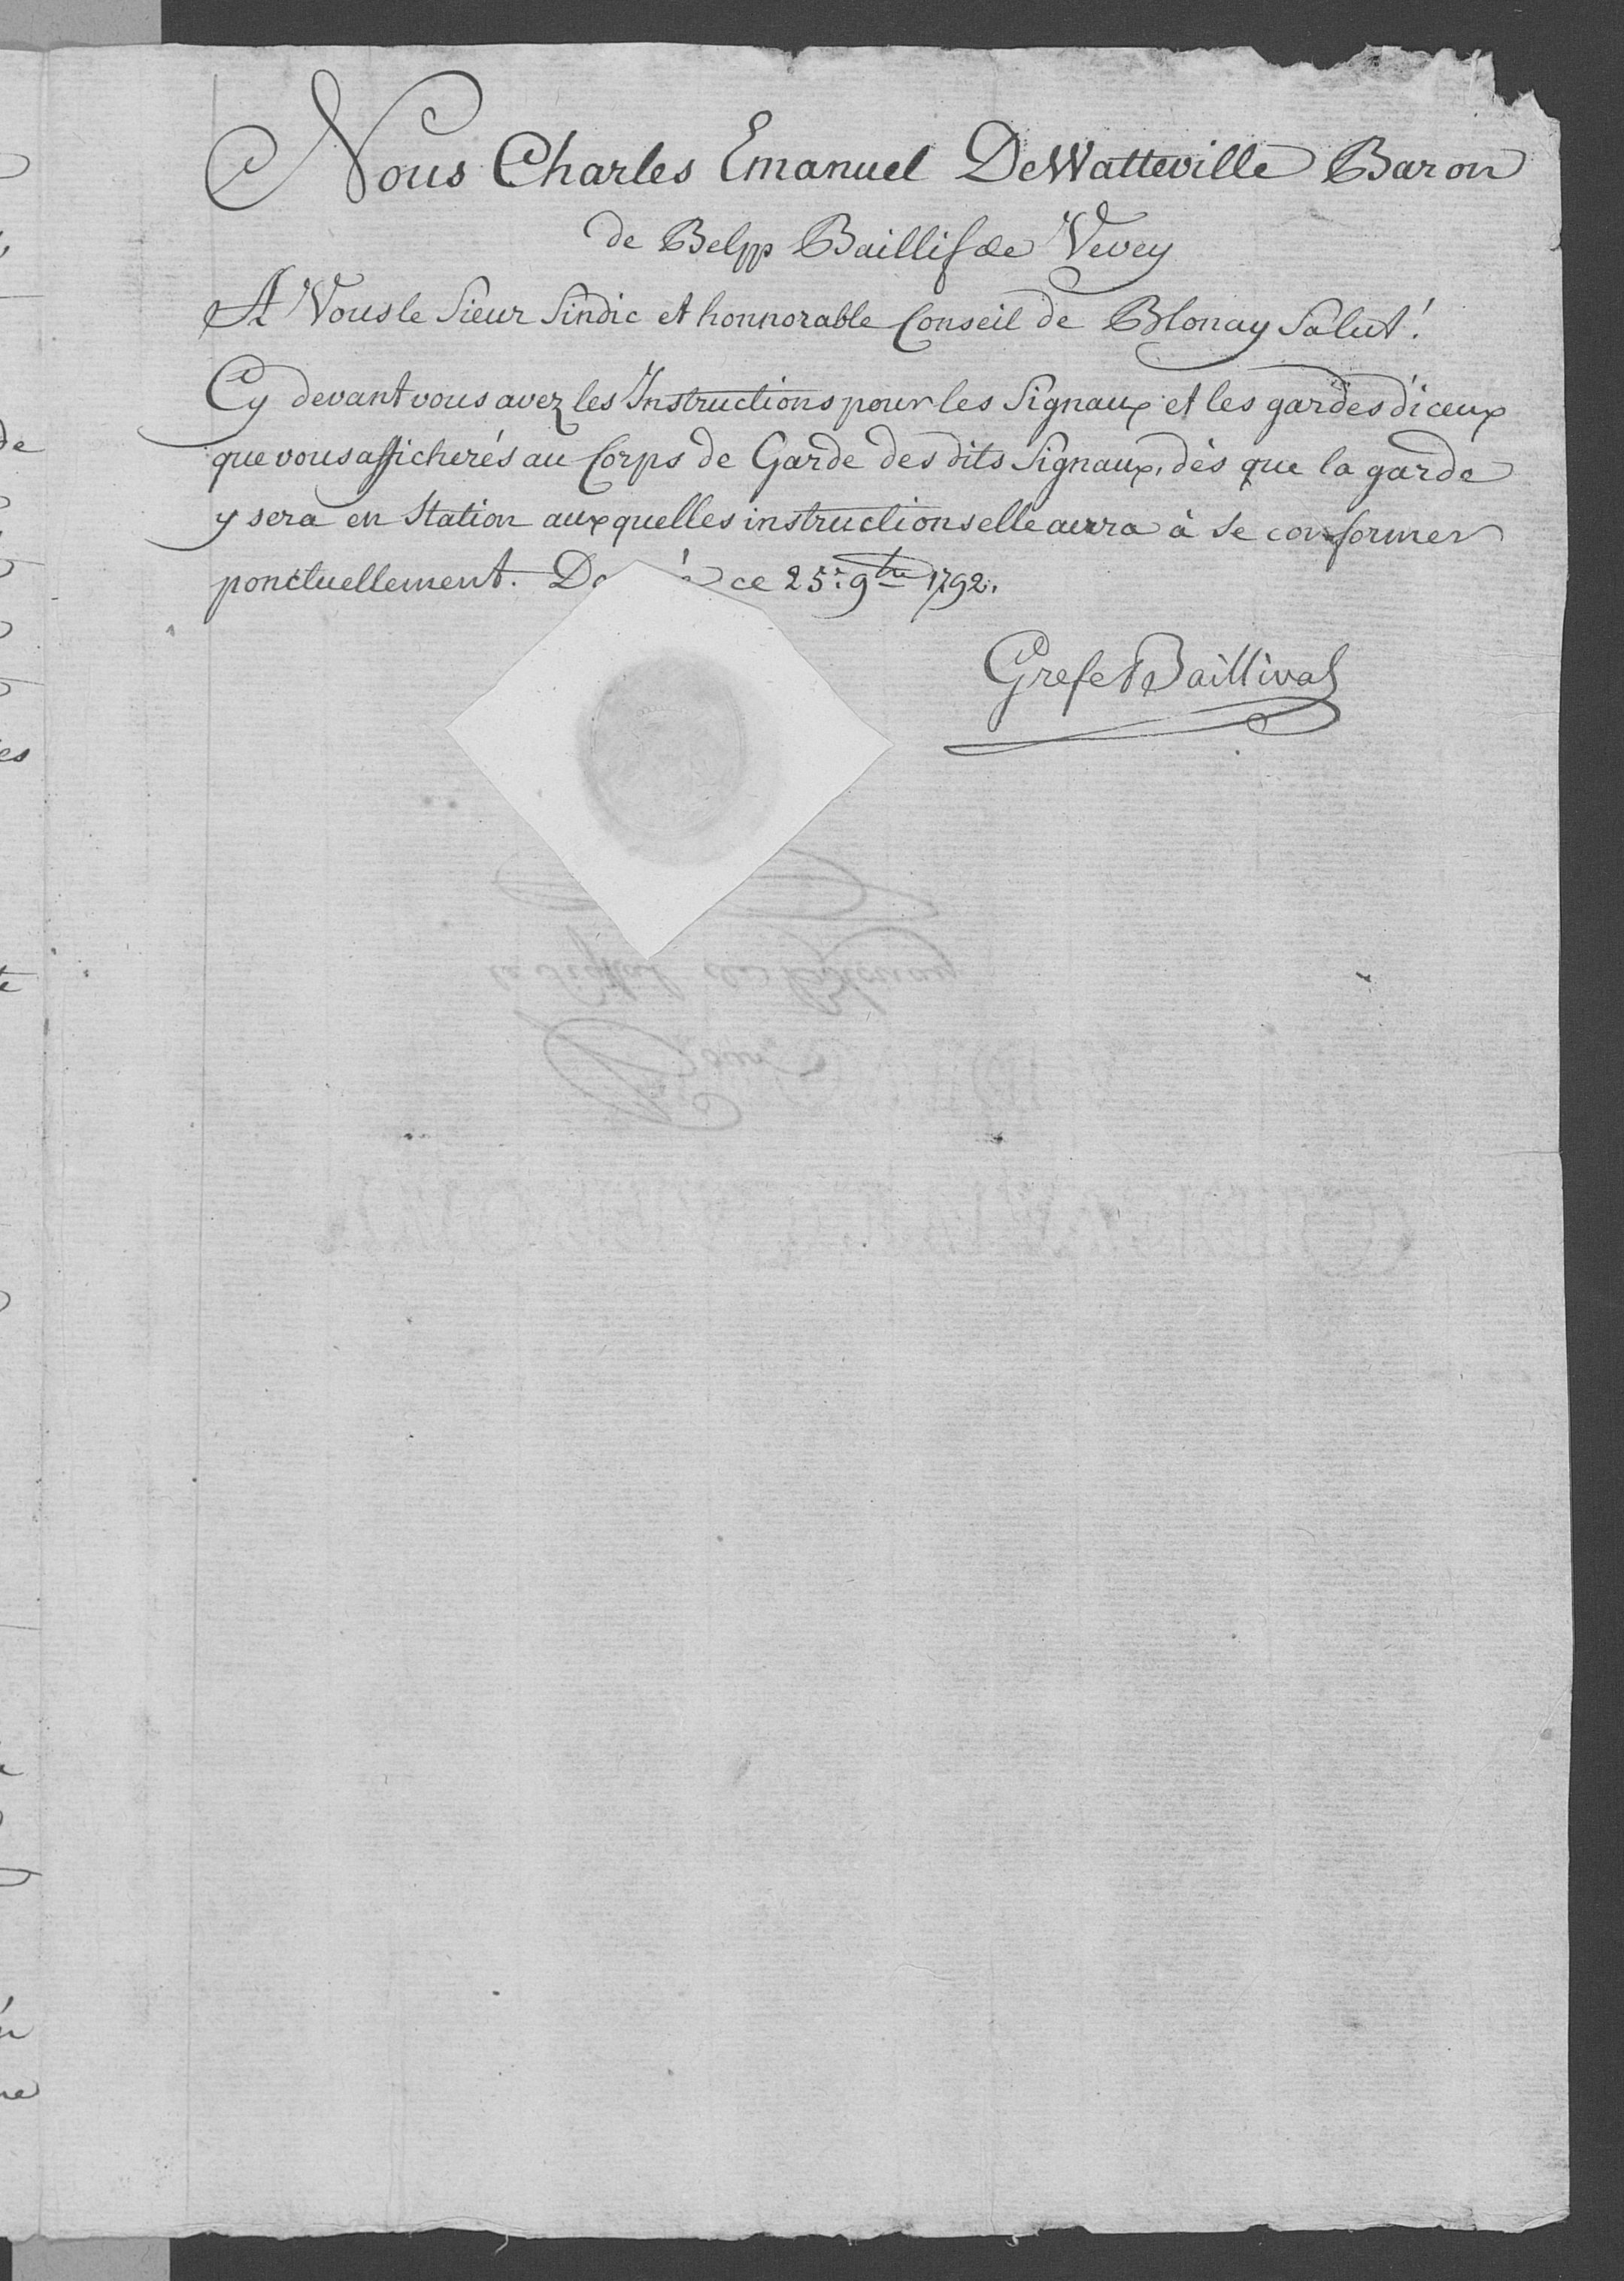 Nous Charles Emanuel DeWatteville Baron
de Belpp Baillif de Vevey
A Vous le Sieur Sindic et honnorable Conseil de Blonay Salut!
Cy devant vous avez les Instructions pour les Signaux et les gardes d'iceux
que vous afficherés au Corps de Garde des dits Signaux, dès que la garde
y sera en Station aux quelles instructions elle aura à se conformer
ponctuellement. ce 25.e 9bre 1792.
Grefe Baillival